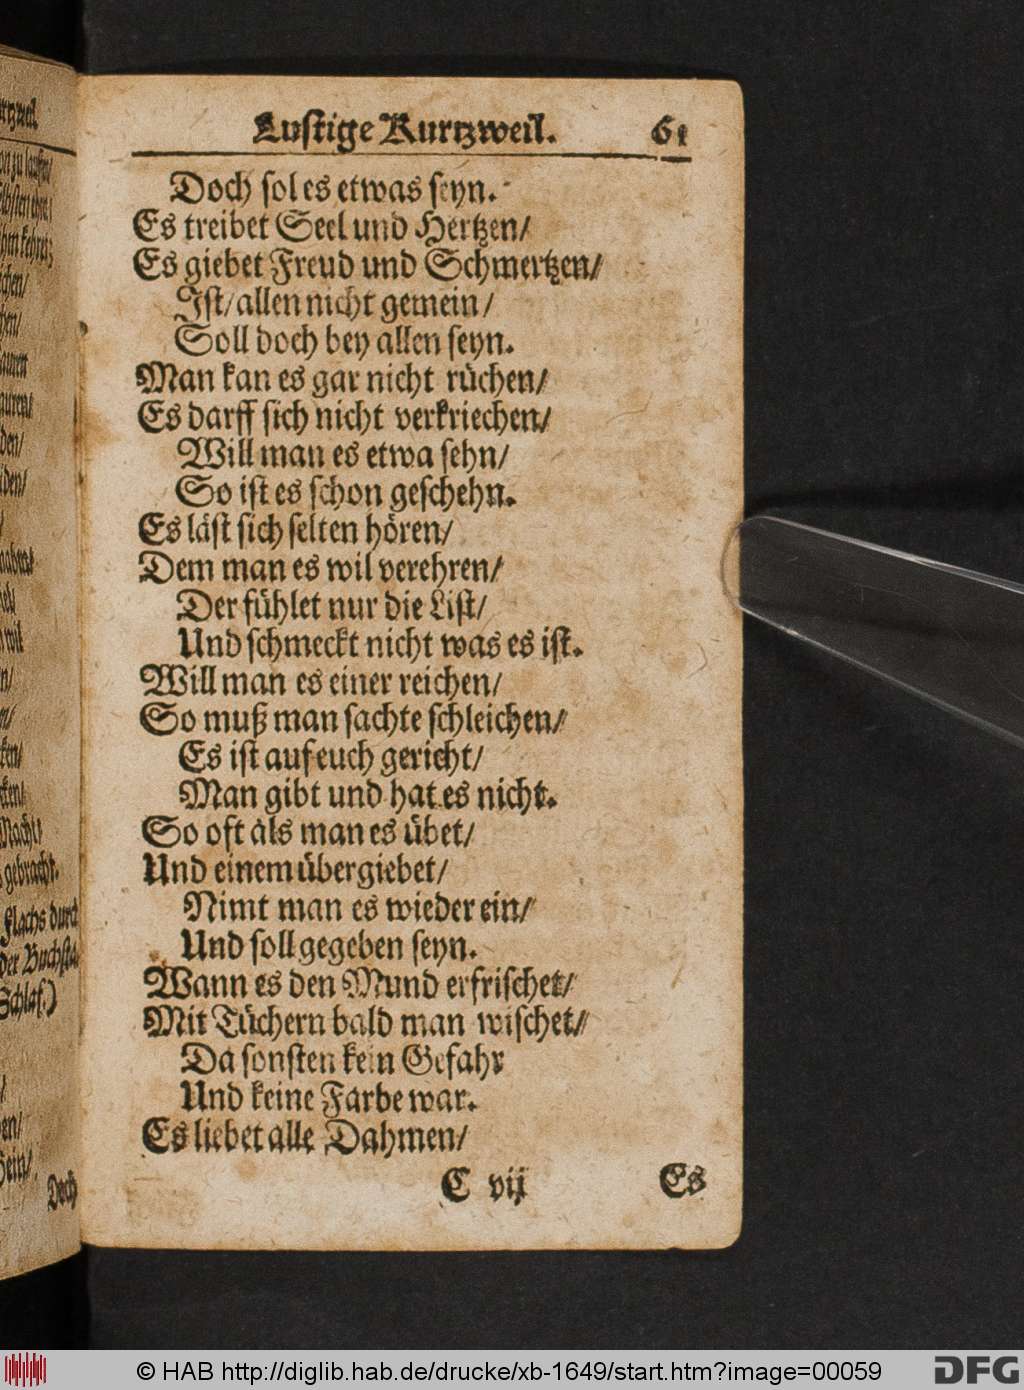 Lustige Kurtzweil. 61
Doch sol es etwas seyn.
Es treibet Seel und Hertzen/
Es giebet Freud und Schmertzen/
Ist/ allen nicht gemein/
Soll doch bey allen seyn.
Man kan es gar nicht rüchen/
Es darff sich nicht verkriechen/
Will man es etwa sehn/
So ist es schon geschehn.
Es läst sich selten hören/
Dem man es wil verehren/
Der fühlet nur die List/
Und schmeckt nicht was es ist.
Will man es einer reichen/
So muß man sachte schleichen/
Es ist auf euch gericht/
Man gibt und hat es nicht.
So oft als man es übet/
Und einem übergiebet/
Nimt man es wieder ein/
Und soll gegeben seyn.
Wann es den Mund erfrischet/
Mit Tüchern bald man wischet/
Da sonsten kein Gefahr
Und keine Farbe war.
Es liebet alle Dahmen/
C vij Es
gebracht.
Flachs durch
der Buchsta-
Schlaf.)
Doch
© HAB http://diglib.hab.de/drucke/xb-1649/start.htm?image=00059
DFG